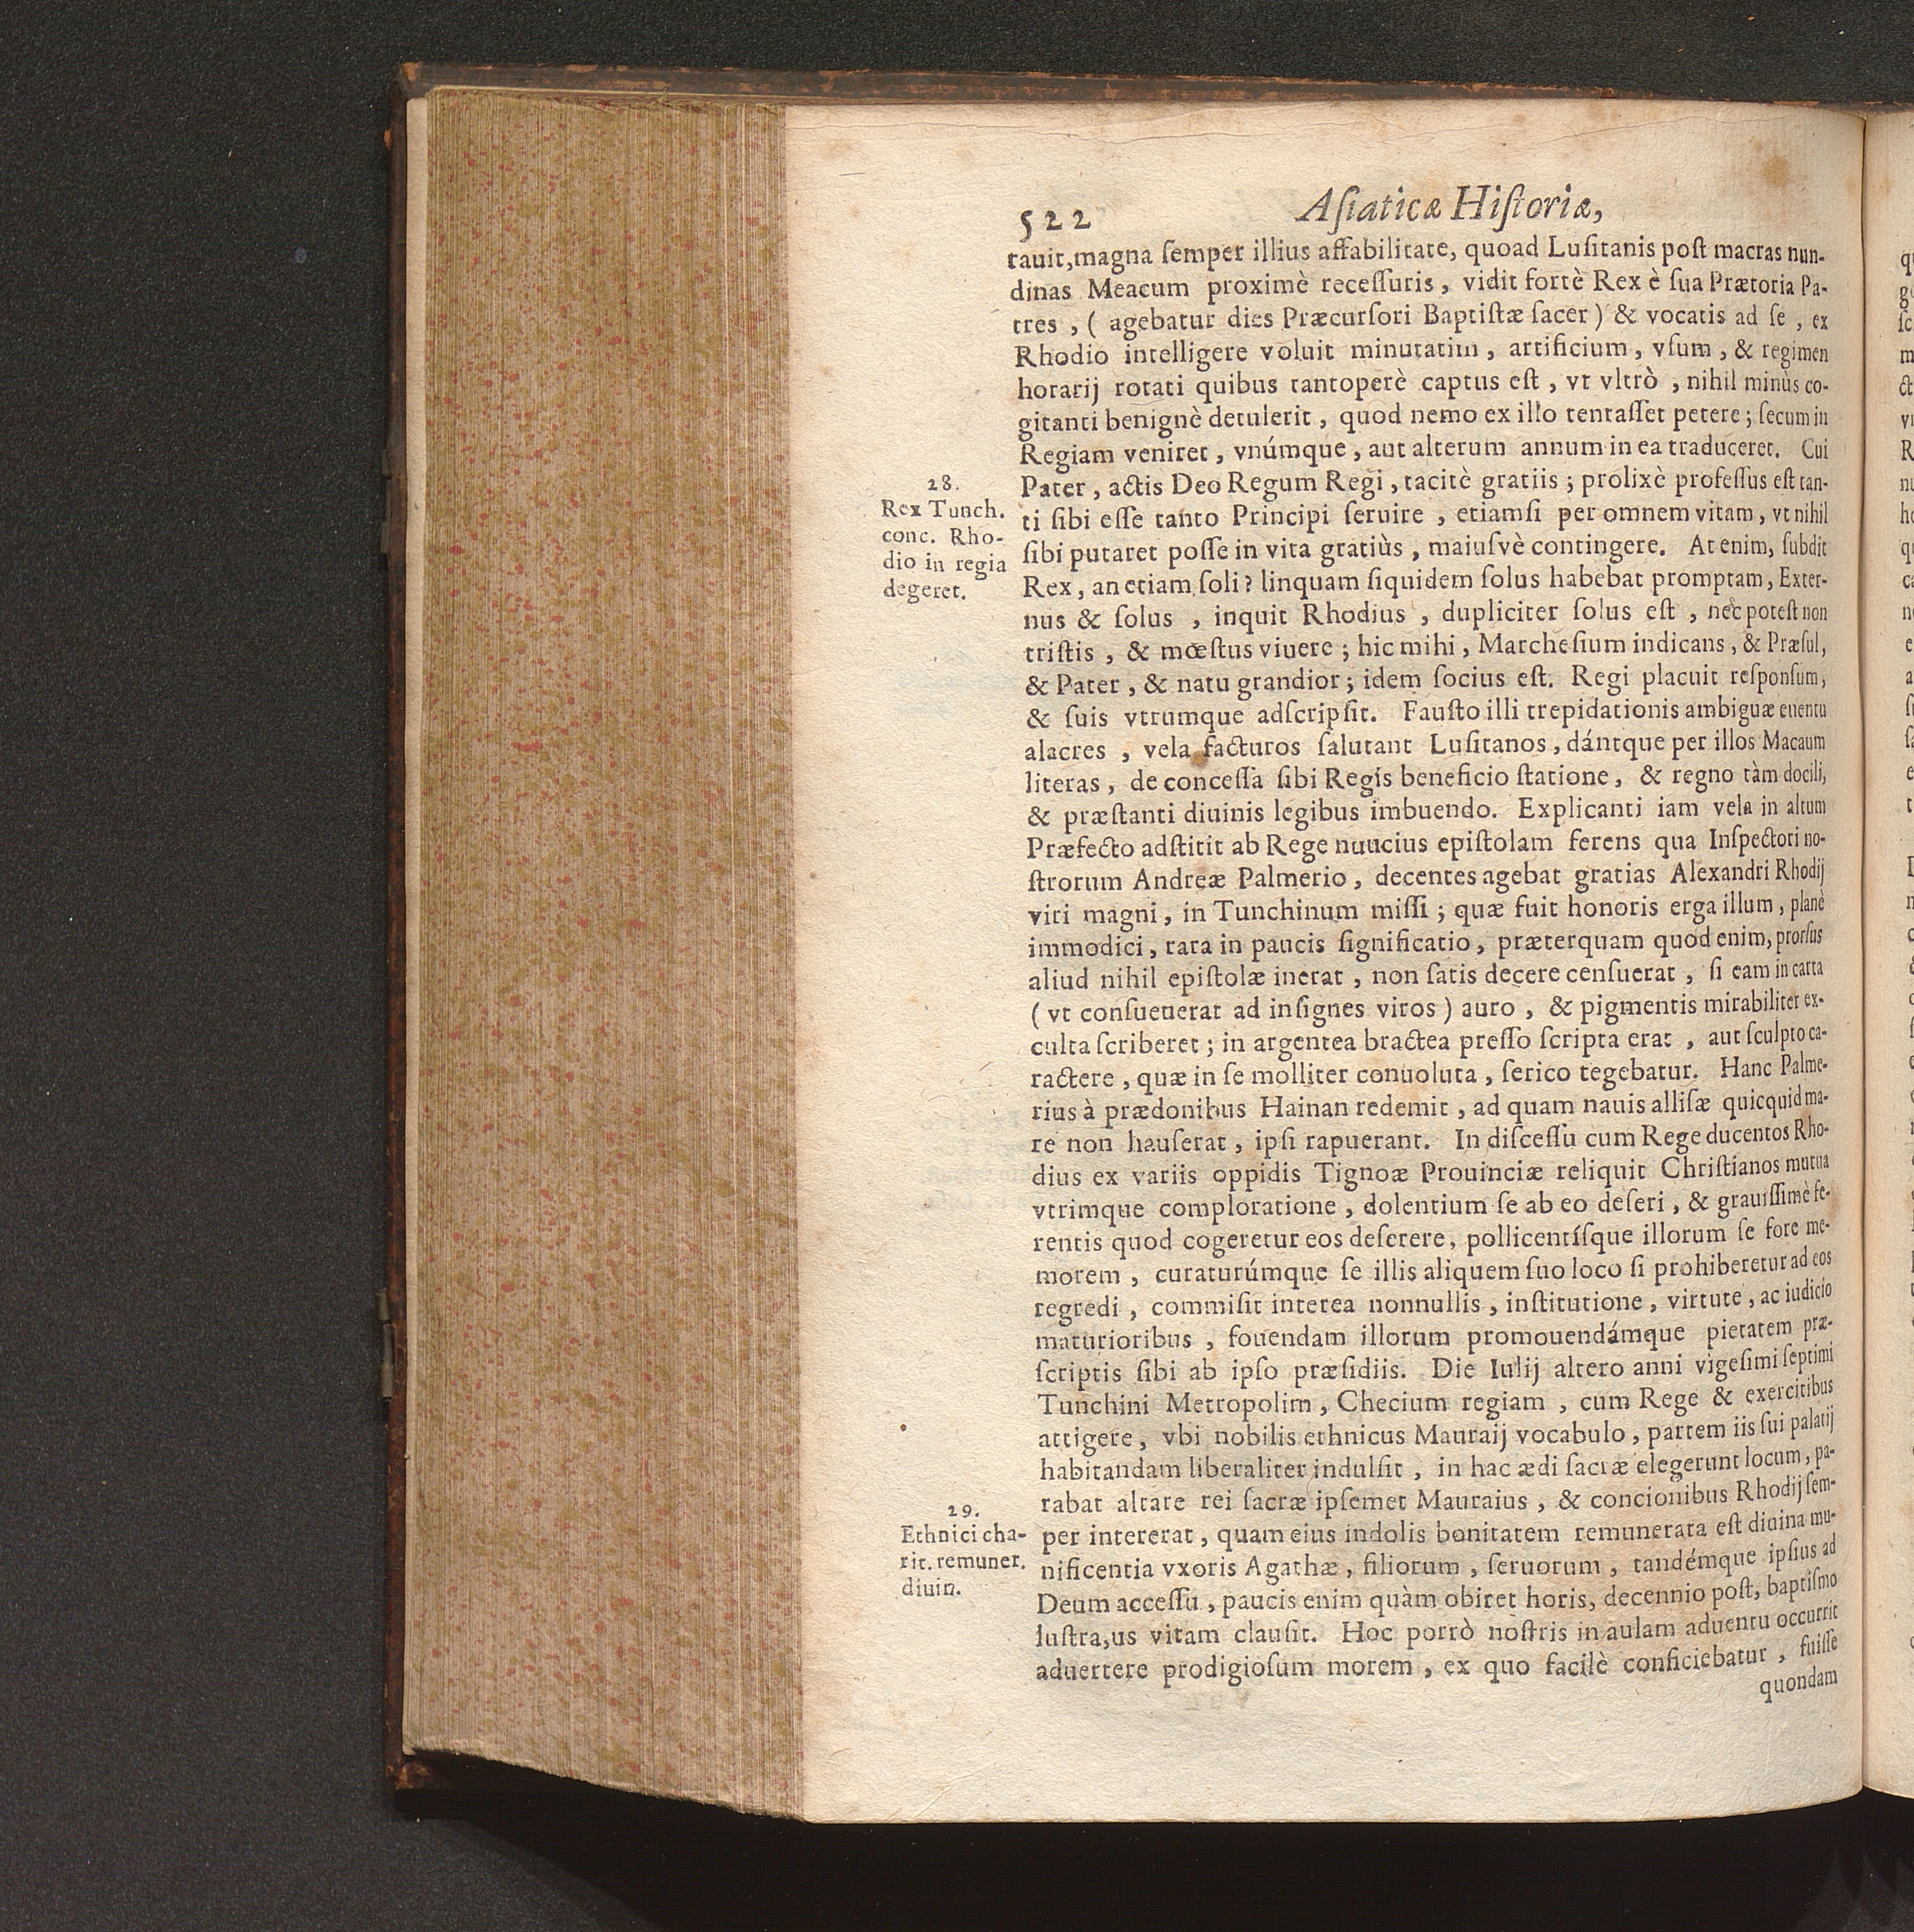 522 Aſiaticæ Hiſtoriæ,
tauit, magna ſemper illius affabilitate, quoad Luſitanis poſt macras nun-
dinas Meacum proximè receſſuris, vidit fortè Rex è ſua Prætoria Pa-
tres, ( agebatur dies Præcurſori Baptiſtæ ſacer ) & vocatis ad ſe, ex
Rhodio intelligere voluit minutatim, artificium, vſum, & regimen
horarij rotati quibus tantoperè captus eſt, vt vltrò, nihil minùs co-
gitanti benignè detulerit, quod nemo ex illo tentaſſet petere; ſecum in
Regiam veniret, vnúmque, aut alterum annum in ea traduceret. Cui
28.
Rex Tunch.
conc. Rho-
dio in regia
degeret.
Pater, actis Deo Regum Regi, tacitè gratiis; prolixè profeſſus eſt tan-
ti ſibi eſſe tanto Principi ſeruire, etiamſi per omnem vitam, vt nihil
ſibi putaret poſſe in vita gratiùs, maiuſvè contingere. At enim, ſubdit
Rex, an etiam ſoli? linquam ſiquidem ſolus habebat promptam, Exter-
nus & ſolus, inquit Rhodius, dupliciter ſolus eſt, nec poteſt non
triſtis, & mœſtus viuere; hic mihi, Marcheſium indicans, & Præſul,
& Pater, & natu grandior; idem ſocius eſt. Regi placuit reſponſum,
& ſuis vtrumque adſcripſit. Fauſto illi trepidationis ambiguæ euentu
alacres, vela facturos ſalutant Luſitanos, dántque per illos Macaum
literas, de conceſſa ſibi Regis beneficio ſtatione, & regno tàm docili,
& præſtanti diuinis legibus imbuendo. Explicanti iam vela in altum
Præfecto adſtitit ab Rege nuucius epiſtolam ferens qua Inſpectori no-
ſtrorum Andreæ Palmerio, decentes agebat gratias Alexandri Rhodij
viri magni, in Tunchinum miſſi; quæ fuit honoris erga illum, planè
immodici, rara in paucis ſignificatio, præterquam quod enim, prorſus
aliud nihil epiſtolæ inerat, non ſatis decere cenſuerat, ſi eam in carta
( vt conſueuerat ad inſignes viros ) auro, & pigmentis mirabiliter ex-
culta ſcriberet; in argentea bractea preſſo ſcripta erat, aut ſculpto ca-
ractere, quæ in ſe molliter conuoluta, ſerico tegebatur. Hanc Palme-
rius à prædonibus Hainan redemit, ad quam nauis alliſæ quicquid ma-
re non hauſerat, ipſi rapuerant. In diſceſſu cum Rege ducentos Rho-
dius ex variis oppidis Tignoæ Prouinciæ reliquit Chriſtianos mutua
vtrimque comploratione, dolentium ſe ab eo deſeri, & grauiſſimè fe-
rentis quod cogeretur eos deſerere, pollicentíſque illorum ſe fore me-
morem, curaturúmque ſe illis aliquem ſuo loco ſi prohiberetur ad eos
regredi, commiſit interea nonnullis, inſtitutione, virtute, ac iudicio
maturioribus, fouendam illorum promouendámque pietatem præ-
ſcriptis ſibi ab ipſo præſidiis. Die Iulij altero anni vigeſimi ſeptimi
Tunchini Metropolim, Checium regiam, cum Rege & exercitibus
attigere, vbi nobilis ethnicus Mauraij vocabulo, partem iis ſui palatij
habitandam liberaliter indulſit, in hac ædi ſacræ elegerunt locum, pa-
rabat altare rei ſacræ ipſemet Mauraius, & concionibus Rhodij ſem-
29.
Ethnici cha-
rit. remuner.
diuin.
per intererat, quam eius indolis bonitatem remunerata eſt diuina mu-
nificentia vxoris Agathæ, filiorum, ſeruorum, tandémque ipſius ad
Deum acceſſu, paucis enim quàm obiret horis, decennio poſt, baptiſmo
luſtra,us vitam clauſit. Hoc porrò noſtris in aulam aduentu occurrit
aduertere prodigioſum morem, ex quo facilè conficiebatur, fuiſſe
quondam